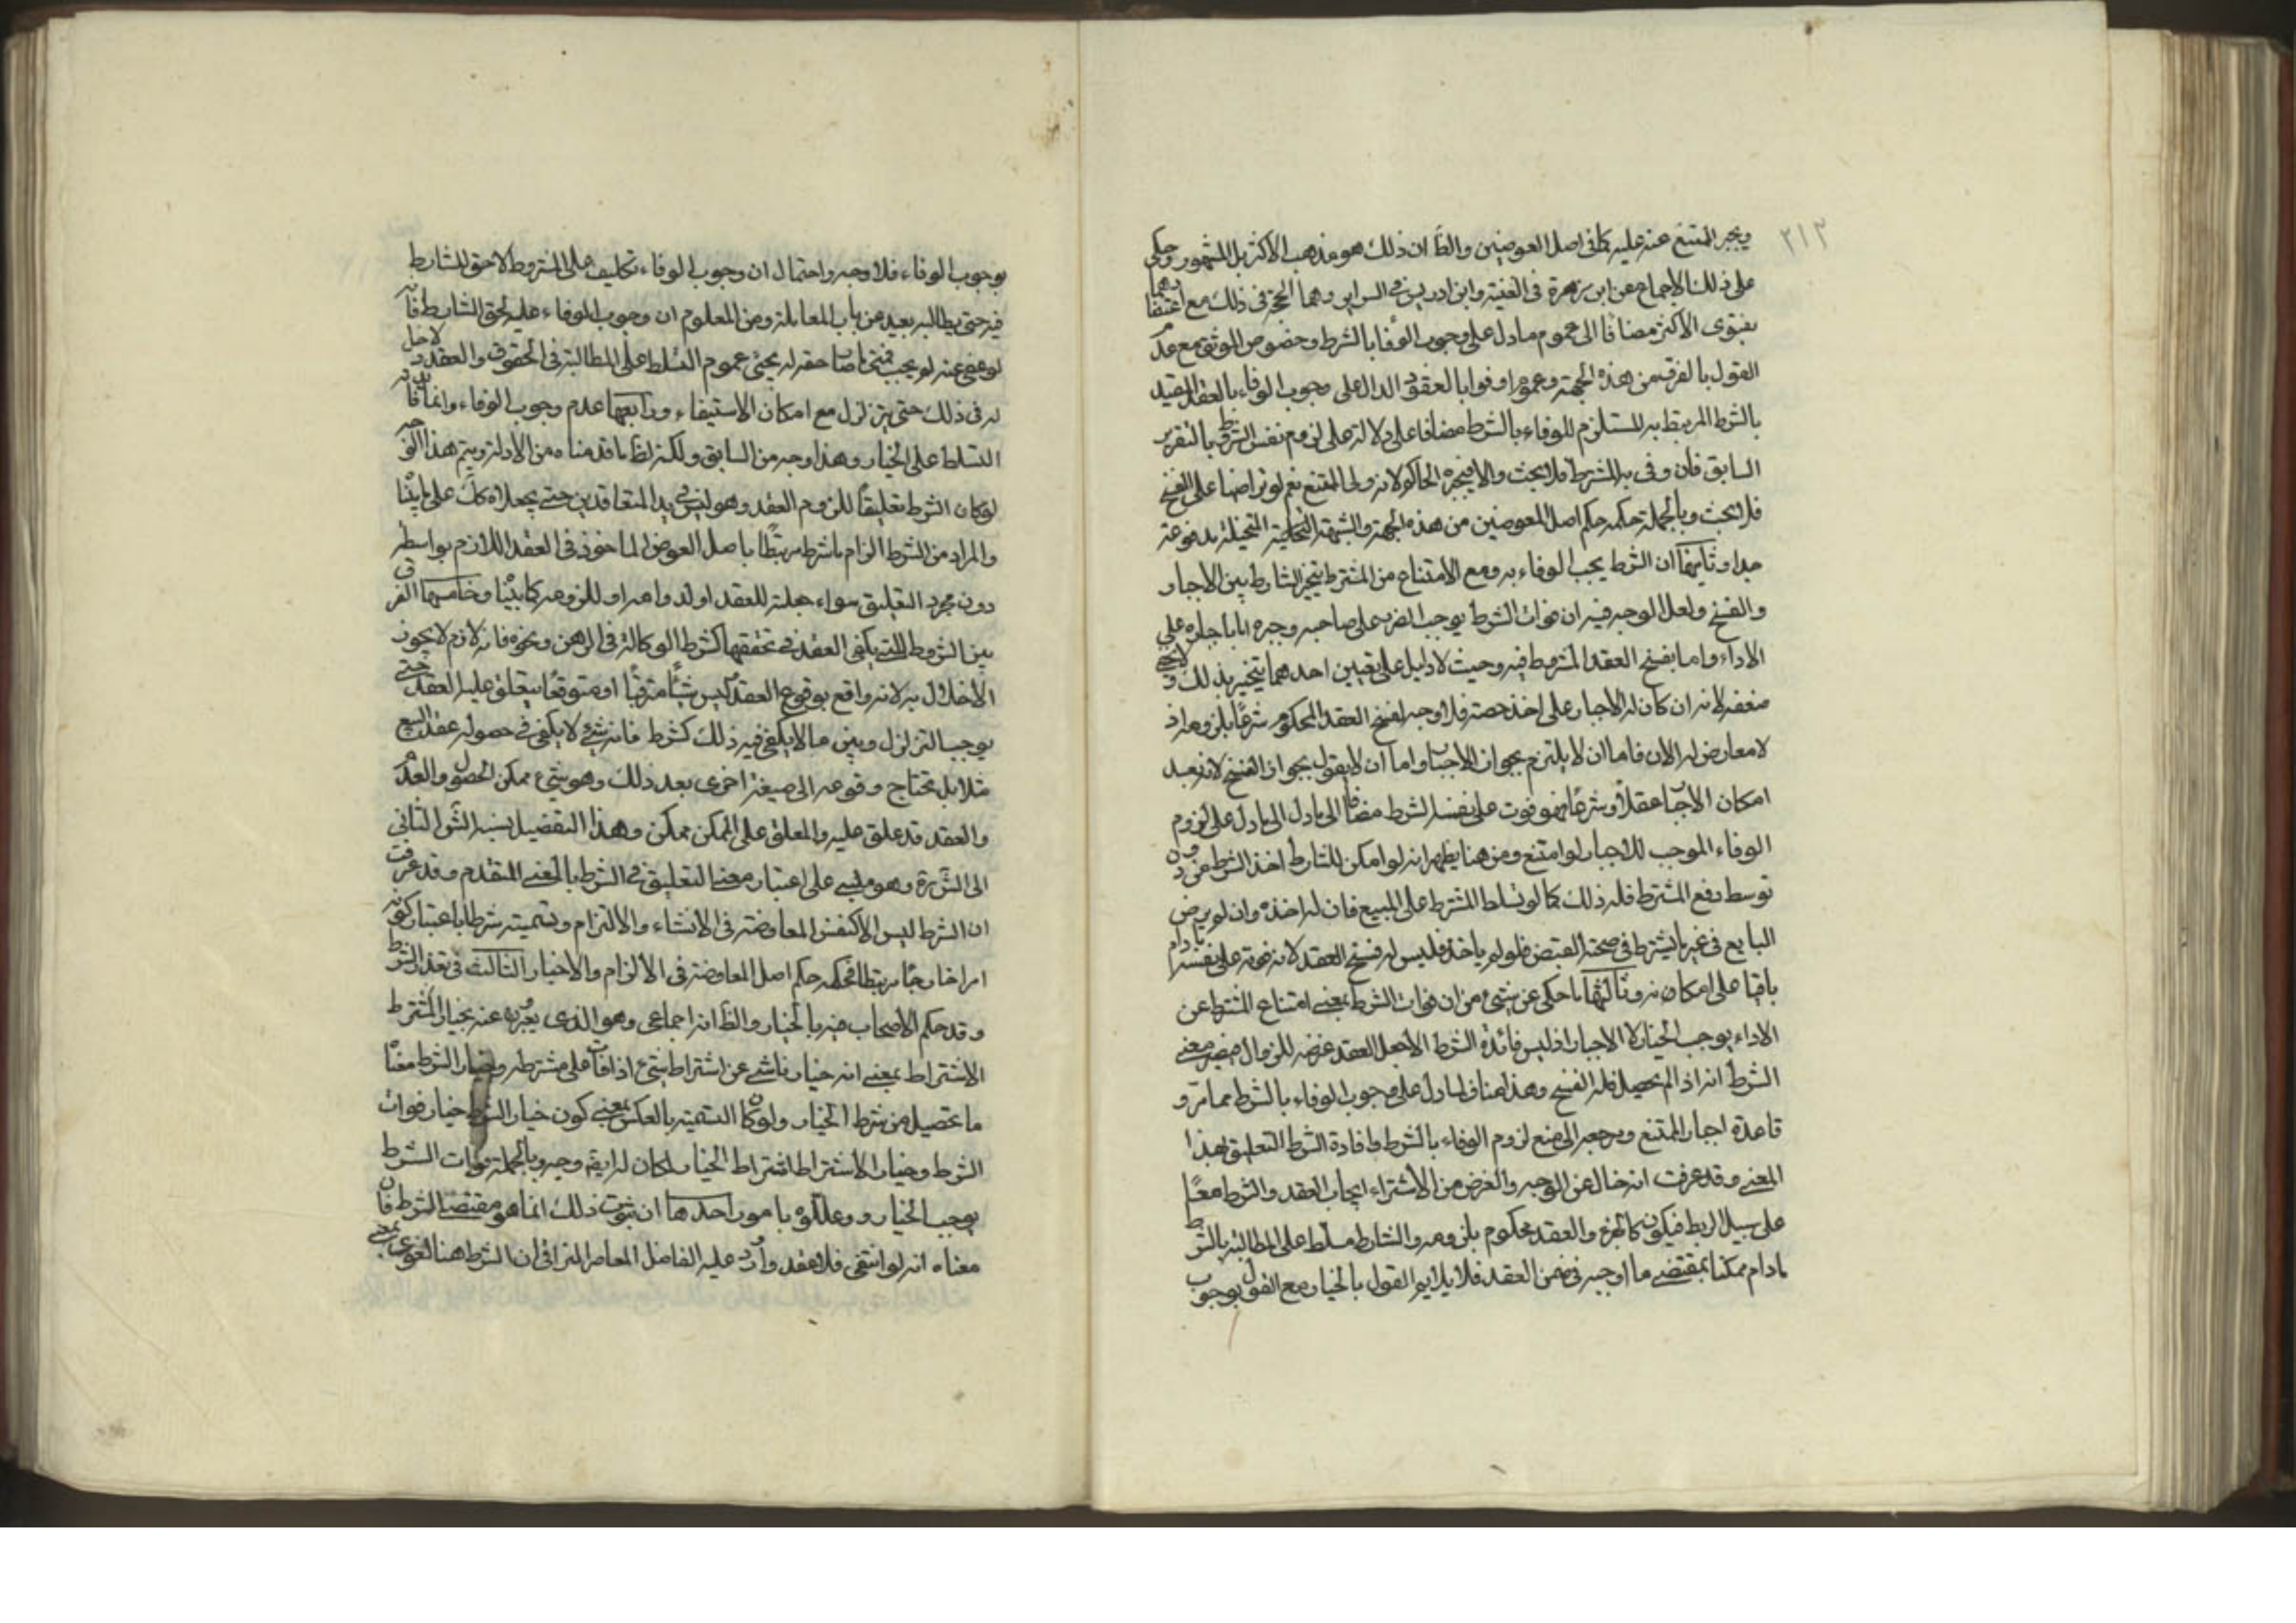 ٢١٣
ويجبر الممتنع عنه عليه كما في اصل العوضين والظ ان ذلك هو مذهب الاكثر بل المشهور وحكى
على ذلك الاجماع عن ابن زهرة في الغنية وابن ادريس في السراير وهما الحجة في ذلك مع اعتضادهما
بفتوى الاكثر مضافا الى عموم ما دل على وجوب الوفا بالشرط وخصوص الموثق مع عدم
القول بالفرق من هذه الجهة وعموم اوفوا بالعقود الدال على وجوب الوفاء بالعقد المقيد
بالشرط المرتبط به المستلزم للوفاء بالشرط مضافا على دلالته على لزوم نفس الشرط بالتقرير
السابق فان وفى به المشترط فلا بحث والا فيجبره الحاكم لانه ولى الممتنع نعم لو تراضيا على الفسخ
فلا بحث وبالجملة حكمه حكم اصل العوضين من هذه الجهة والشبهة المتخيلة مدفوعة
جدا وثانيها ان الشرط يجب الوفاء به ومع الامتناع من المشترط يتخير الشارط بين الاجبار
والفسخ ولعل الوجه فيه ان فوات الشرط يوجب الضرر على صاحبه وجبره اما باجباره على
الاداء واما بفسخ العقد المشروط فيه وحيث لا دليل على تعيين احدهما يتخير بذلك ولا يخفى
ضعفه لانه ان كان له الاجبار على اخذ حصته فلا وجه لفسخ العقد المحكوم شرعا بلزومه اذ
لا معارض له الان فاما ان لا يلتزم بجواز الاجبار واما ان لا يقول بجواز الفسخ لانه بعد
امكان الاجبار عقلا وشرعا فهو فوت على نفسه الشرط مضافا الى ما دل الى ما دل على لزوم
الوفاء الموجب للاجبار لو امتنع ومن هنا يظهر انه لو امكن للشارط اخذ الشرط من دون
توسط دفع المشترط فله ذلك كما لو تسلط المشترط على المبيع فان له اخذه وان لم يرض
البايع في غير ما يشترط في صحته القبض فلو لم ياخذ فليس له فسخ العقد لانه فوته على نفسه ما دام
باقيا على امكانه وثالثها ما حكى عن من ان فوات الشرط بمعنى امتناع المشترط عن
الاداء يوجب الخيار لا الاجبار اذ ليس فائدة الشرط الا جعل العقد عرضة للزوال فيصير معنى
الشرط انه اذا لم يحصل فله الفسخ وهذا مناف لما دل على وجوب الوفاء بالشرط مما مر و
قاعدة اجبار الممتنع ومرجعه الى منع لزوم الوفاء بالشرط وافادة الشرط التعليق بهذا
المعنى وقد عرفت انه خال عن الوجه والغرض من الاشتراء ايجاب العقد والشرط معا
على سبيل الربط فيكون كالجزء والعقد محكوم بلزومه والشارط مسلط على المطالبة بالشرط
ما دام ممكنا بمقتضى ما اوجبه في ضمن العقد فلا يلايم القول بالخيار مع القول بوجوب
بوجوب الوفاء فلا وجه واحتمال ان وجوب الوفاء تكليف على المشروط لا حق للشارط
فيه حتى يطالبه بعيد من باب المعاملة ومن المعلوم ان وجوب الوفاء عليه لحق الشارط فانه
لو عفى عنه لم يجب فمتى ما صار حقه له يجئ عموم التسلط على المطالبة في الحقوق والعقد لا دخل
له في ذلك حتى يتزلزل مع امكان الاستيفاء ورابعها عدم وجوب الوفاء وانما فائدته
التسلط على الخيار وهذا وجه من السابق ولكنه لظ ما قدمناه من الادلة ويتم هذا الوجه
لو كان الشرط تعليقا للزوم العقد وهو ليس بيد المتعاقدين حتى يجعلاه كك على ما بينا
والمراد من الشرط الزام ما شرط مرتبطا باصل العوض الماخوذ في العقد اللازم بواسطه
دون مجرد التعليق سواء جعلته للعقد او لدوامه او للزومه كما بينا وخامسها الفرق
بين الشروط التي يكفى العقد في تحققها كشرط الوكالة في الرهن ونحوه فانه لازم لا يجوز
الاخلال به لانه واقع بوقوع العقد ليس شيئا مترقبا او متوقعا يتعلق عليه العقد حتى
يوجب التزلزل وبين ما لا يكفى فيه ذلك كشرط فانه شئ لا يكفى في حصوله عقد البيع
مثلا بل تحتاج وقوعه الى صيغة اخرى بعد ذلك وهو شئ ممكن الحصول والعدم
والعقد قد علق عليه والمعلق على الممكن ممكن وهذا التفصيل نسبه الثاني
الى وهو مبنى على اعتبار معنى التعليق في الشرط بالمعنى المتقدم وقد عرفت
ان الشرط ليس الا كنفس المعاوضة في الانشاء والالتزام وتسميته شرطا باعتبار كونه
امرا خارجا مرتبطا فحكمه حكم اصل المعاوضة في الالزام والاخبار الثالث في تعذر الشرط
وقد حكم الاصحاب فيه بالخيار والظ انه اجماعى وهو الذى يعبر عنه بخيار المشترط
الاشتراط بمعنى انه خيار ناشى عن اشتراط شئ اذا فات على مشترطه وخيار الشرط معناه
ما تحصيل من شرط الخيار ولو كان التسمية بالعكس بمعنى كون خيار الشرط خيار فوات
الشرط وخيار الاشتراط اشتراط الخيار لكان له ايضا وجه وبالجملة فوات الشرط
يوجب الخيار وعللوه بامور احدها ان ثبوت ذلك انما هو مقتضى الشرط فان
معناه انه لو انتفى فلا عقد واورد عليه الفاضل المعاصر النراقى ان الشرط هنا لغوى بمعنى